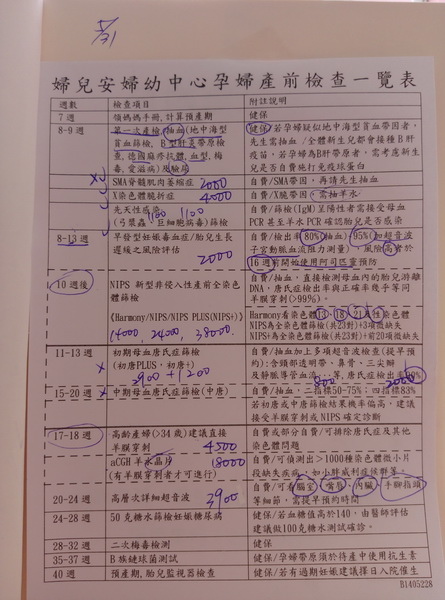 5/31
婦兒安婦幼中心孕婦產前檢查一覽表
週數 檢查項目 附註說明
7 週 領媽媽手冊,計算預產期 健保
8-9 週 第一次產檢,抽血(地中海型 健保/若孕婦疑似地中海型貧血帶因者,
貧血篩檢, B 型肝炎帶原檢 先生需抽血/全體新生兒都會接種 B 肝
查,德國麻疹抗體,血型,梅 疫苗,若孕婦為 B 肝帶原者,需考慮新生
毒,愛滋病)及驗尿 兒是否自費施打免疫球蛋白
SMA 脊髓肌肉萎縮症 2000 自費/SMA 帶因,再請先生抽血
X 染色體脆折症 4000 自費/X 脆帶因,需抽羊水
先天性感染 1100 1100 自費/篩檢(IgM)呈陽性者需接受母血
(弓漿蟲、巨細胞病毒)篩檢 PCR 甚至羊水 PCR 確認胎兒是否感染
8-13 週 早發型妊娠毒血症/胎兒生長 自費/檢出率(80%抽血)(95%加超音波
遲緩之風險評估 2000 子宮動脈血流阻力測量),風險高者於
16 週前開始使用阿司匹靈預防
10 週後 NIPS 新型非侵入性產前全染色 自費/抽血,直接檢測母血內的胎兒游離
體篩檢 DNA,唐氏症檢出率與正確率幾乎等同
羊膜穿刺(>99%)。
《Harmony/NIPS/NIPS PLUS(NIPS+)》 Harmony 看染色體 13、18、21
14000, 24000, 38000. NIPS 為全染色體篩檢(共23對)+3項微缺失
NIPS+為全染色體篩檢(共23對)+前20項微缺失
11-13 週 初期母血唐氏症篩檢 自費/抽血加上多項超音波檢查(提早預
(初唐PLUS,初唐+) 約):含頸部透明帶、鼻骨、三尖瓣
3900 + 1200 及靜脈導管血流…等,唐氏症檢出率90%
15-20 週 中期母血唐氏症篩檢(中唐) 自費/抽血,二指標50-75%;四指標83%
800 2000
若初唐或中唐篩檢結果機率偏高,建議
接受羊膜穿刺或 NIPS 確定診斷
17-18 週 高齡產婦(>34 歲)建議直接 自費或部分自費/可排除唐氏症及其他
羊膜穿刺 4500 染色體問題
aCGH 羊水晶片 18000 自費/可偵測出>1000種染色體微小片
(有羊膜穿刺者才可進行) 段缺失疾病,如小胖威利症候群等。
20-24 週 高層次詳細超音波 3900 自費/可看腦室、嘴唇、內臟、手腳指頭
等細節,需提早預約時間
24-28 週 50 克糖水篩檢妊娠糖尿病 健保/若血糖值高於140,由醫師評估
建議做100克糖水測試確診。
28-32 週 二次梅毒檢測 健保
35-37 週 B 族鏈球菌測試 健保/孕婦帶原須於待產中使用抗生素
40 週 預產期,胎兒監視器檢查 健保/若有過期妊娠建議擇日入院催生
B1405228